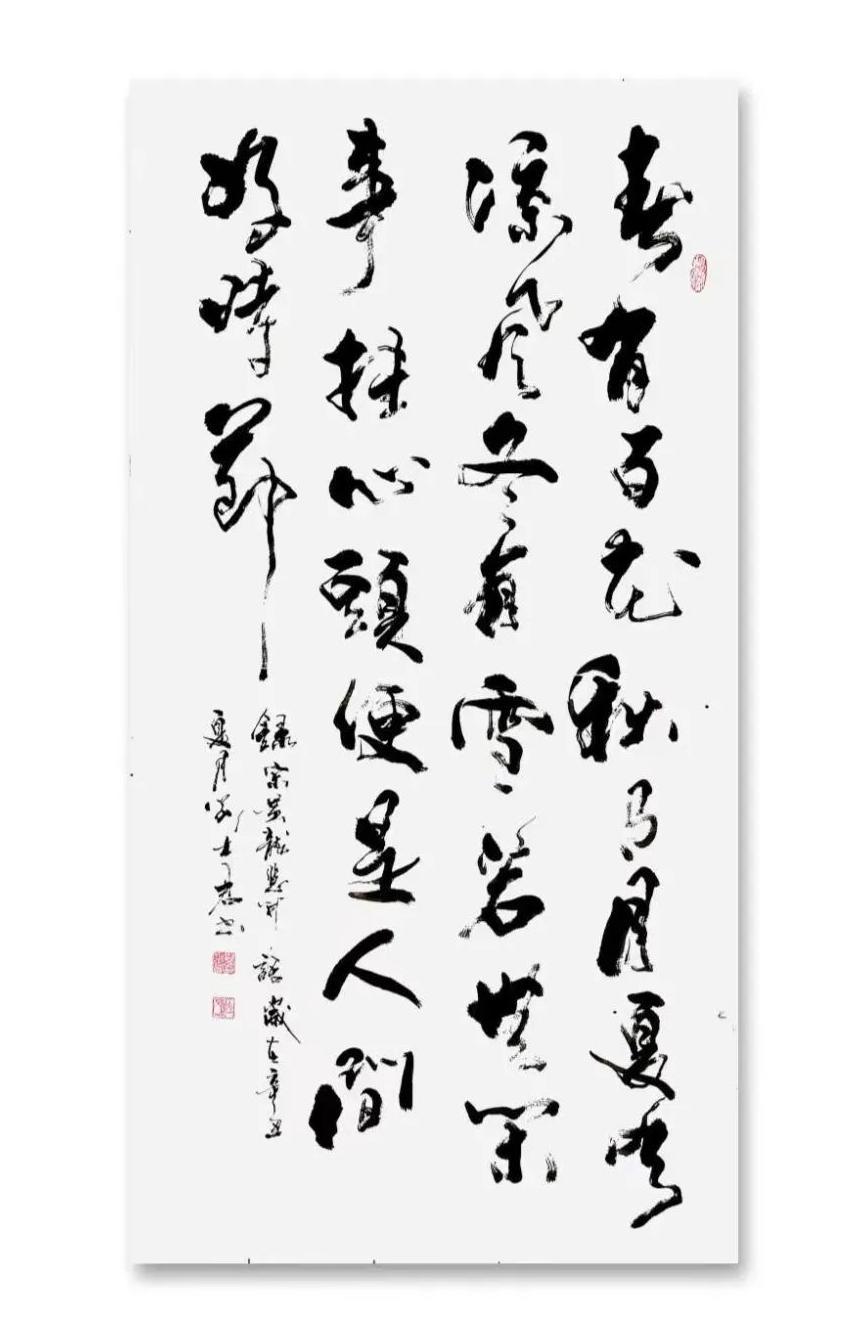 春有百花秋有月夏
涼風冬有雪若無閑
事挂心頭便是人間
好時節
錄宋黃龍慧開 歲在辛丑
夏月 士 書